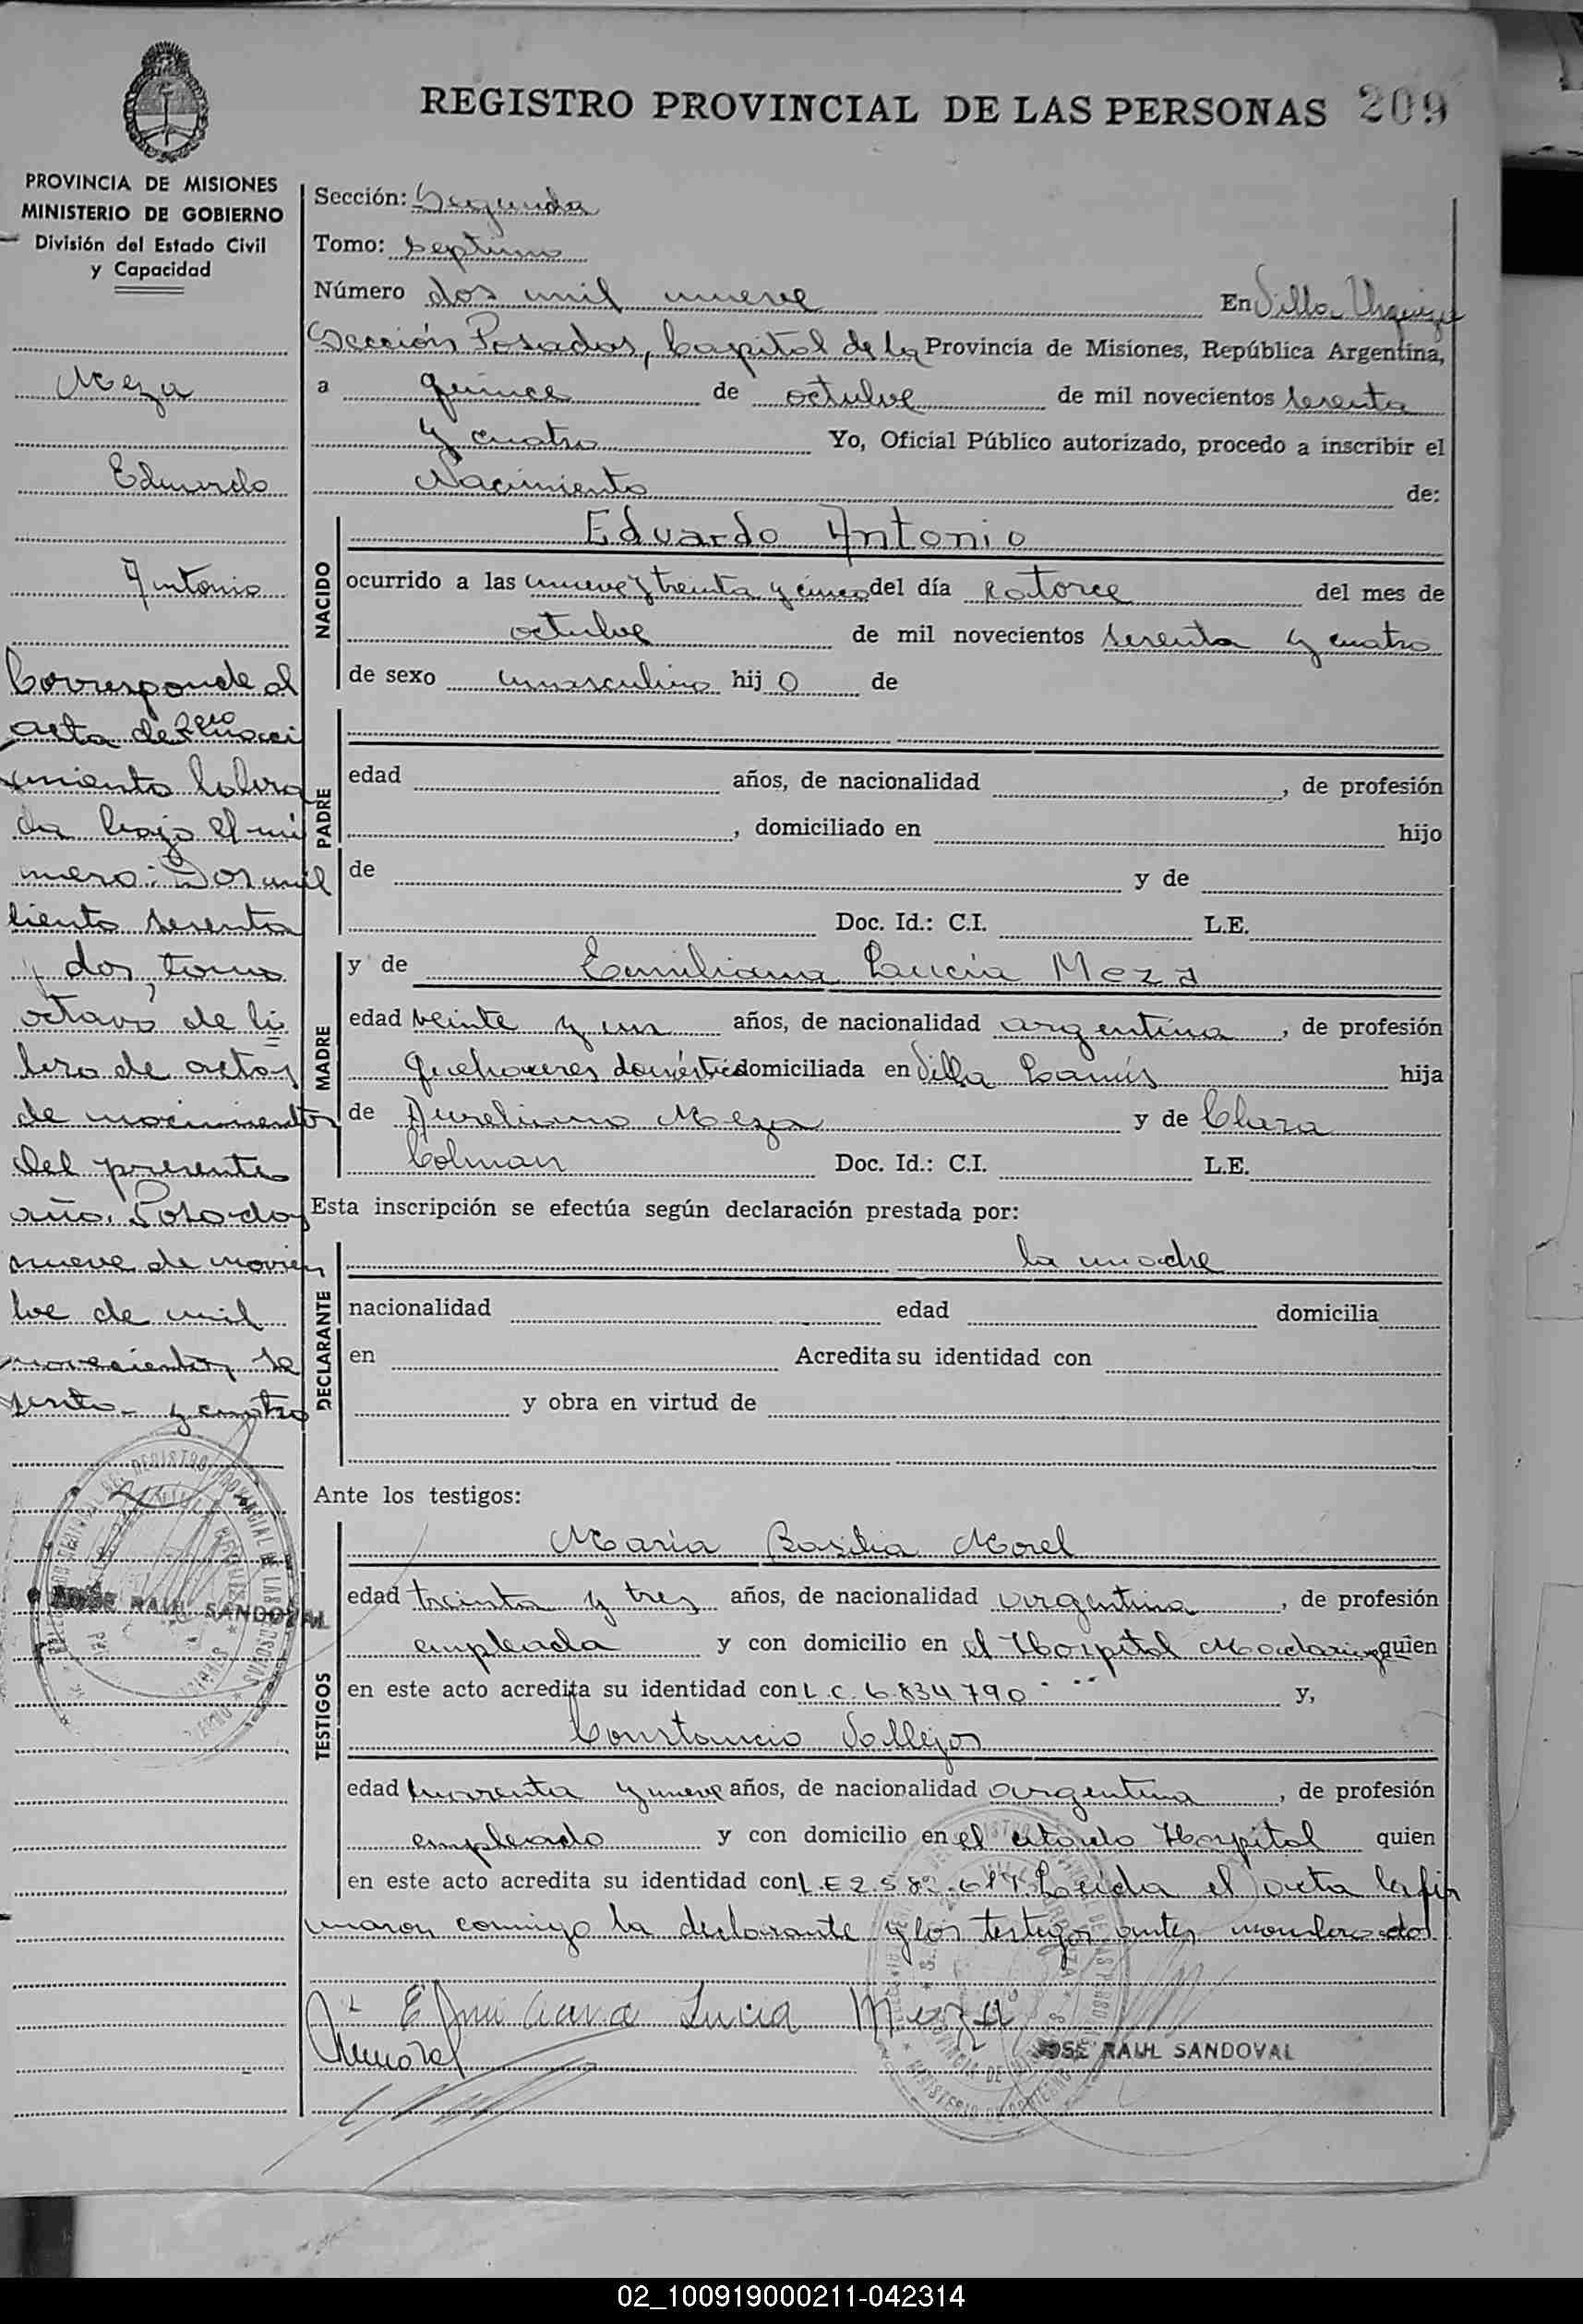 REGISTRO PROVINCIAL DE LAS PERSONAS 209
PROVINCIA DE MISIONES
MINISTERIO DE GOBIERNO
División del Estado Civil
y Capacidad
Meza
Eduardo
Antonio
Corresponde al
acta de Rec⁰ naci
miento labra
da bajo el nú
mero: Dos mil
ciento sesenta
y dos, tomo
octavo de li
bro de actas
de nacimientos
del presente
año. Posadas
nueve de noviem
bre de mil
novecientos se
senta y cuatro
JOSE RAUL SANDOVAL
Sección: Segunda
Tomo: Septimo
Número dos mil nueve En Villa Urquiza
Sección Posadas, Capital de la Provincia de Misiones, República Argentina,
a quince de octubre de mil novecientos sesenta
y cuatro Yo, Oficial Público autorizado, procedo a inscribir el
Nacimiento de:
NACIDO
Eduardo Antonio
ocurrido a las nueve y treinta y cinco del día catorce del mes de
octubre de mil novecientos sesenta y cuatro
de sexo masculino hij o de
PADRE
edad años, de nacionalidad , de profesión
, domiciliado en hijo
de y de
Doc. Id.: C.I. L.E.
MADRE
y de Emiliana Lucía Meza
edad veinte y un años, de nacionalidad argentina , de profesión
quehaceres domésticos domiciliada en Villa Lanús hija
de Aureliano Meza y de Clara
Colman Doc. Id.: C.I. L.E.
Esta inscripción se efectúa según declaración prestada por:
DECLARANTE
la madre
nacionalidad edad domicilia
en Acredita su identidad con
y obra en virtud de
Ante los testigos:
TESTIGOS
María Basilia Morel
edad treinta y tres años, de nacionalidad argentina , de profesión
empleada y con domicilio en el Hospital Madariaga quien
en este acto acredita su identidad con L.C. 6.834.790 y,
Constancio Vallejos
edad cuarenta y nueve años, de nacionalidad argentina , de profesión
empleado y con domicilio en el citado Hospital quien
en este acto acredita su identidad con L.E 2.58 Leída el acta la fir
maron conmigo la declarante y los testigos antes nombrados.
Emiliana Lucia Meza
JOSE RAUL SANDOVAL
02_100919000211-042314